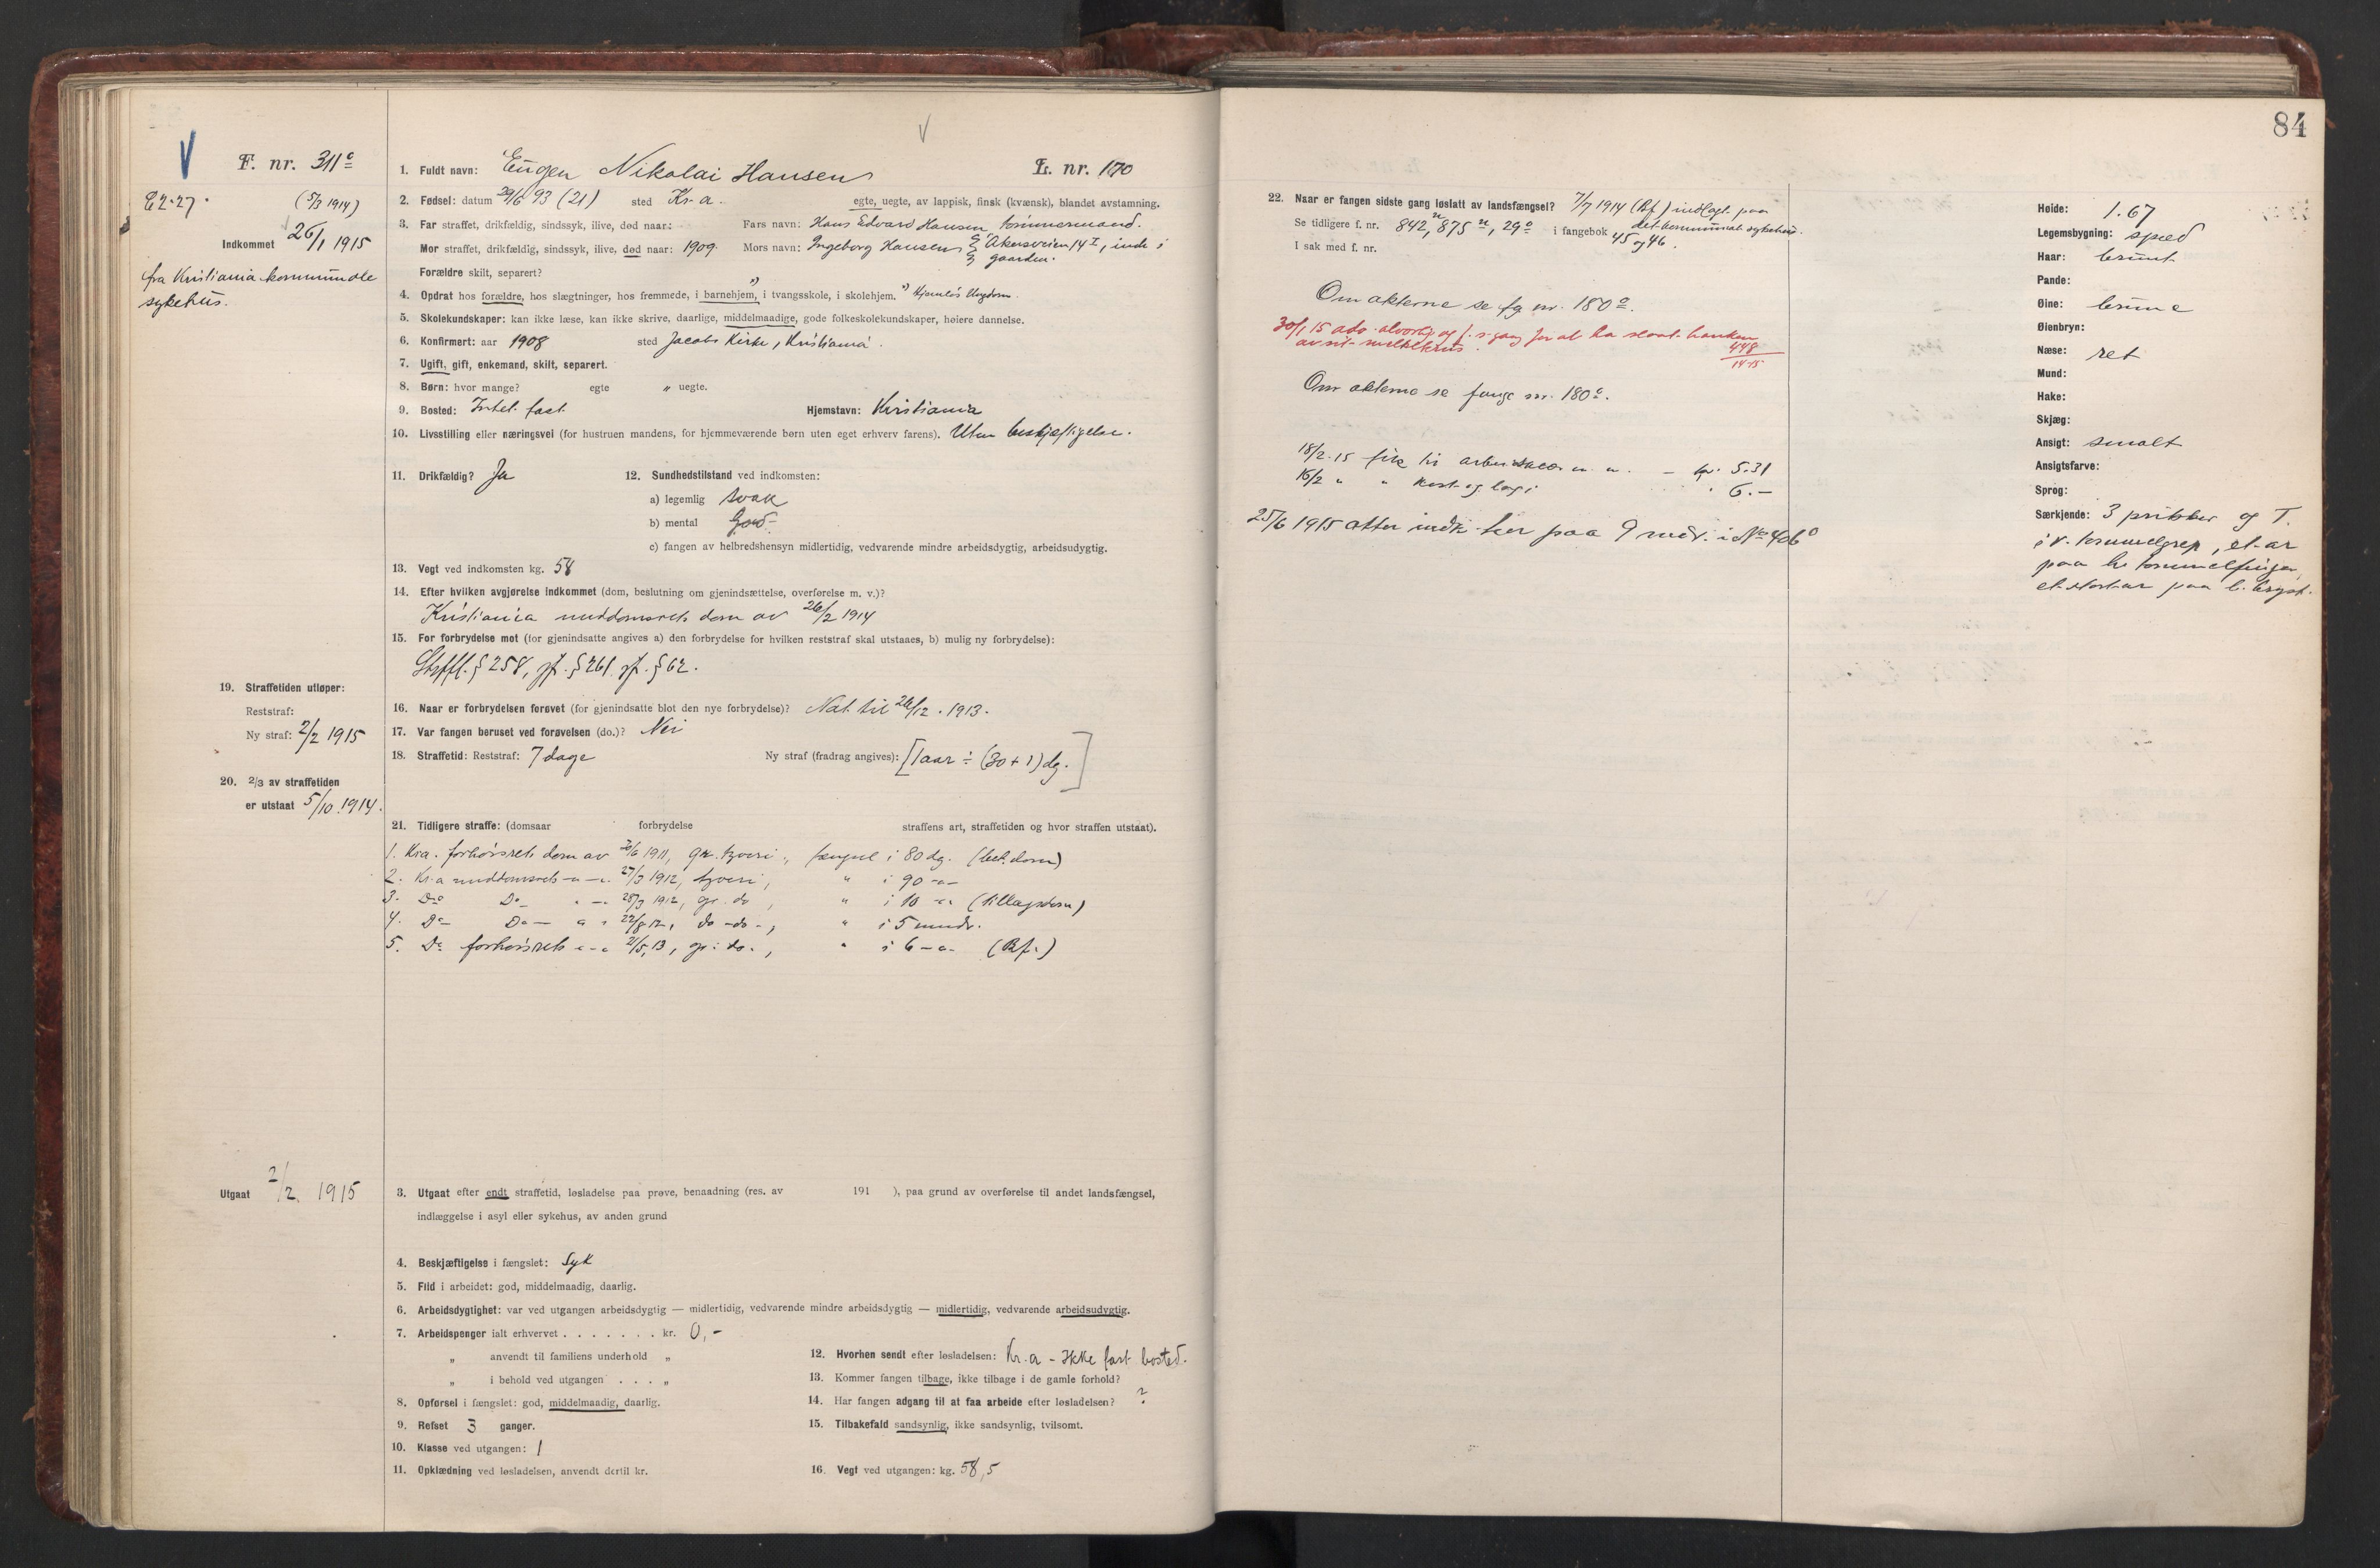 84
F. nr. 311c
L. nr. 170
E2.27.
(5/3 1914)
Indkommet 26/1 1915
fra Kristiania kommunale
sykehus.
1. Fuldt navn: Eugen Nikolai Hansen
2. Fødsel: datum 29/6 93 (21) sted Kr.a. egte, uegte, av lappisk, finsk (kvænsk), blandet avstamning.
3. Far straffet, drikfældig, sindssyk, ilive, død naar: Fars navn: Hans Edvard Hansen, tømmermand.
Mor straffet, drikfældig, sindssyk, ilive, død naar: 1909. Mors navn: Ingeborg Hansen Akersveien 14 I, inde i
gaarden.
Forældre skilt, separert?
4. Opdrat hos forældre, hos slægtninger, hos fremmede, i barnehjem, x) i tvangsskole, i skolehjem. x) Hjemløs Ungdom.
5. Skolekundskaper: kan ikke læse, kan ikke skrive, daarlige, middelmaadige, gode folkeskolekundskaper, høiere dannelse.
6. Konfirmert: aar 1908 sted Jacobs Kirke, Kristiania.
7. Ugift, gift, enkemand, skilt, separert.
8. Børn: hvor mange? egte „ uegte.
9. Bosted: Intet fast Hjemstavn: Kristiania
10. Livsstilling eller næringsvei (for hustruen mandens, for hjemmeværende børn uten eget erhverv farens). Uten beskjæftigelse.
11. Drikfældig? Ja 12. Sundhedstilstand ved indkomsten:
a) legemlig svak
b) mental God
c) fangen av helbredshensyn midlertidig, vedvarende mindre arbeidsdygtig, arbeidsudygtig.
13. Vegt ved indkomsten kg. 58
14. Efter hvilken avgjørelse indkommet (dom, beslutning om gjenindsættelse, overførelse m. v.)?
Kristiania meddomsrets dom av 26/2 1914
15. For forbrydelse mot (for gjenindsatte angives a) den forbrydelse for hvilken reststraf skal utstaaes, b) mulig ny forbrydelse):
Strffl. § 258, jf. § 261 jf. § 62.
16. Naar er forbrydelsen forøvet (for gjenindsatte blot den nye forbrydelse)? Nat til 26/12. 1913.
17. Var fangen beruset ved forøvelsen (do.)? Nei
18. Straffetid: Reststraf: 7 dage Ny straf (fradrag angives): [1 aar ÷ (30 + 1) dg.]
19. Straffetiden utløper:
Reststraf:
Ny straf: 2/2 1915
20. 2/3 av straffetiden
er utstaat 5/10. 1914.
21. Tidligere straffe: (domsaar forbrydelse straffens art, straffetiden og hvor straffen utstaat).
1. Kr.a. forhørsrets dom av 20/6 1911, gr. tyveri, fængsel i 80 dg. (bet. dom)
2. Kr.a meddomsrets -"- 27/3 1912, tyveri, " i 90 -"-
3. Do Do -"- 28/3 1912, gr. do, " i 10 -"- (tillægsdom)
4. Do Do -"- 22/8 12, do -do-, " i 5 mndr.
5. Do forhørsrets -"- 2/5 13, gr: do., " i 6 -"- (Bf.)
Utgaat 2/2. 1915
3. Utgaat efter endt straffetid, løsladelse paa prøve, benaadning (res. av 191 ), paa grund av overførelse til andet landsfængsel,
indlæggelse i asyl eller sykehus, av anden grund
4. Beskjæftigelse i fængslet: Syk
5. Flid i arbeidet: god, middelmaadig, daarlig.
6. Arbeidsdygtighet: var ved utgangen arbeidsdygtig — midlertidig, vedvarende mindre arbeidsdygtig — midlertidig, vedvarende arbeidsudygtig.
7. Arbeidspenger ialt erhvervet . . . . . . . kr. 0,-
„ anvendt til familiens underhold „
„ i behold ved utgangen . . . „
8. Opførsel i fængslet: god, middelmaadig, daarlig.
9. Refset 3 ganger.
10. Klasse ved utgangen: 1
11. Opklædning ved løsladelsen, anvendt dertil kr.
12. Hvorhen sendt efter løsladelsen: Kr.a - Ikke fast bosted.
13. Kommer fangen tilbage, ikke tilbage i de gamle forhold?
14. Har fangen adgang til at faa arbeide efter løsladelsen? ?
15. Tilbakefald sandsynlig, ikke sandsynlig, tvilsomt.
16. Vegt ved utgangen: kg. 58,5
22. Naar er fangen sidste gang løslatt av landsfængsel? 7/7 1914 (Bf) indlagt paa
det kommunale sykehus.
Se tidligere f. nr. 842n, 875n, 29c i fangebok 45 og 46.
I sak med f. nr.
Om akterne se fg nr. 180c.
30/1 15 adv. alvorlig og f. s. gang for at ha slaat hanken
av sit melkekrus. 448
14-15
Om akterne se fange nr. 180c.
18/2-15 fik til arbeidsklær m. m. - kr. 5.31
16/2 " " Kost og logi " 6.-
25/6 1915 atter indk. her paa 9 mdr. i No 406c
Høide: 1.67
Legemsbygning: spæd
Haar: brunt
Pande:
Øine: brune
Øienbryn:
Næse: ret
Mund:
Hake:
Skjæg:
Ansigt: smalt
Ansigtsfarve:
Sprog:
Særkjende: 3 prikker og T.
i v. tommelgrep, et ar
paa h. tommelfinger,
et stort ar paa v. bryst.